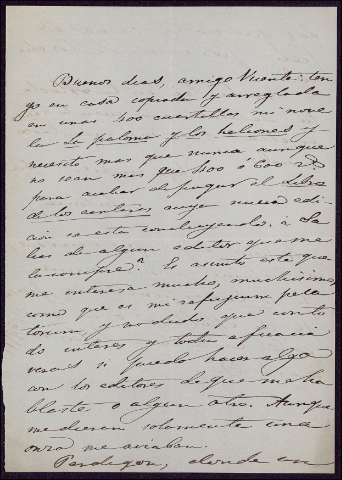 Buenos dias, amigo Vicente: ten-
go en casa copiada y arreglada
en unas 400 cuartillas mi nove-
la La paloma y los halcones y
necesito mas que nunca aunque
no sean mas que 400 ó 600 rs
para acabar de pagar el Libro
de los cantares cuya nueva edi-
ción se está concluyendo. ¿ Sa-
bes de algun editor que me
la compre? Es asunto este que
me interesa mucho, muchisimo,
como que es mi refugium peca-
torum, y no dudo que con to-
do interes y toda eficacia
verás si puedo hacer algo
con los editores de que me ha-
blaste o algun otro. Aunque
me dieran solamente una
onza me aviaban.
Perdigon, donde en